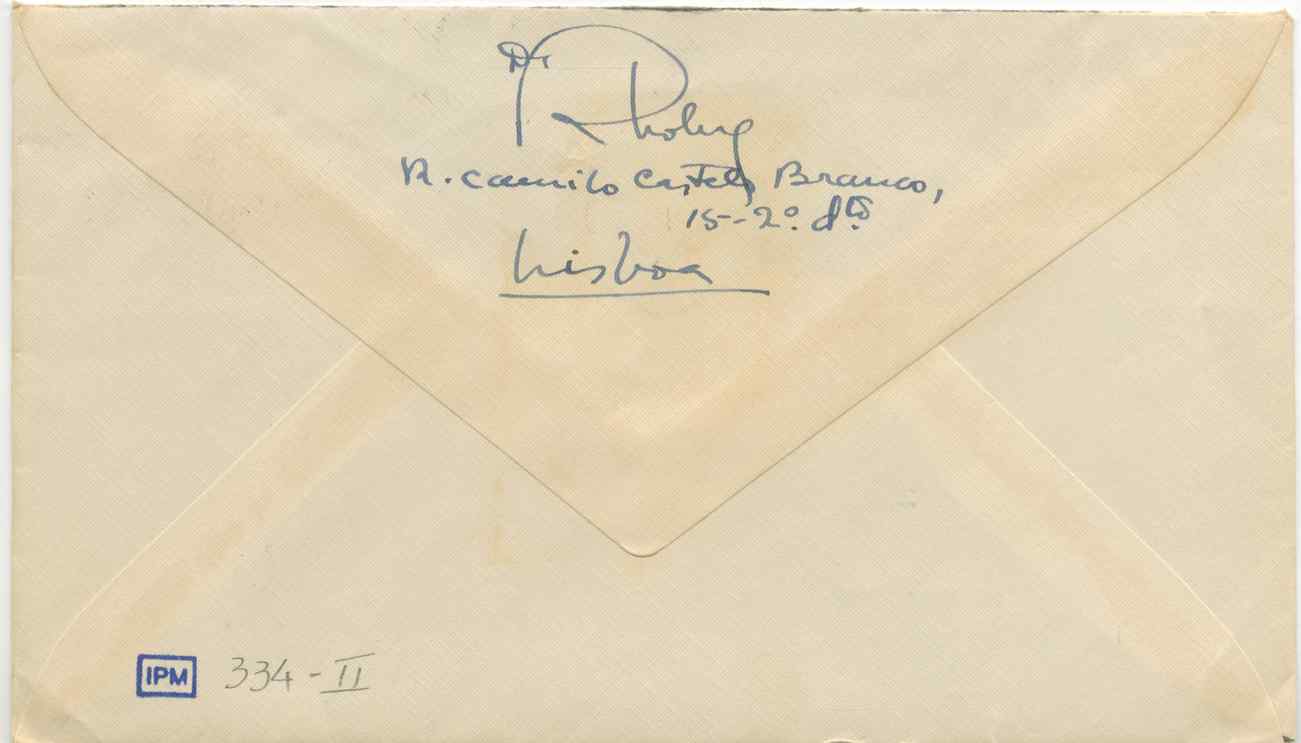 Dr
R. Camilo Castelo Branco,
15-2º. dtº
Lisboa
IPM 334-II